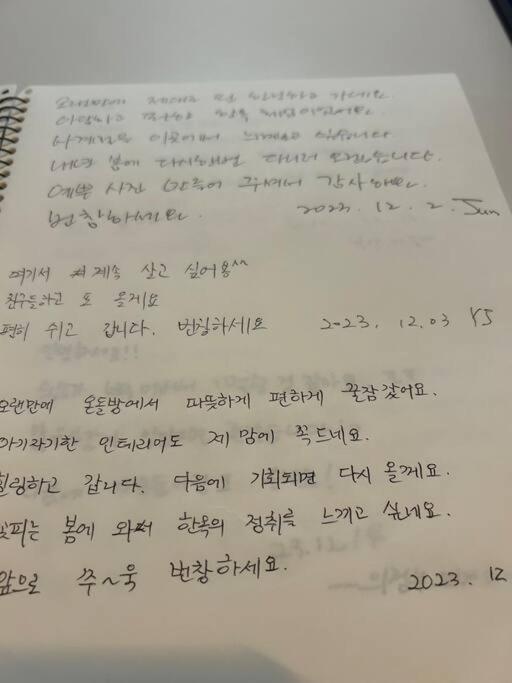 오랜만에 제대로 된 힐링하고 가네요.
아담하고 한옥 체험이었어요.
사계절을 이곳에서 느껴보고 싶습니다
내년 봄에 다시한번 다니러 오겠습니다.
예쁜 사진 많이 찍어 주셔서 감사해요.
번창하세요. 2023. 12. 2. Jun
여기서 계속 살고 싶어용^^
친구들하고 또 올게요
편히 쉬고 갑니다. 번칠하세요 2023. 12.03 YJ
오랜만에 온돌방에서 따뜻하게 편하게 꿀잠 갔어요.
아기자기한 인테리어도 제 맘에 꼭드네요.
힐링하고 갑니다. 다음에 기회되면 다시 올께요.
꽃피는 봄에 와서 한옥의 정취를 느끼고 싶네요.
앞으로 쭈~욱 번창하세요. 2023. 12